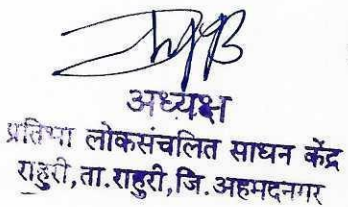 अध्यक्ष
प्रतिभा लोकसंचलित साधन केंद्र
राहुरी,ता.राहुरी,जि.अहमदनगर